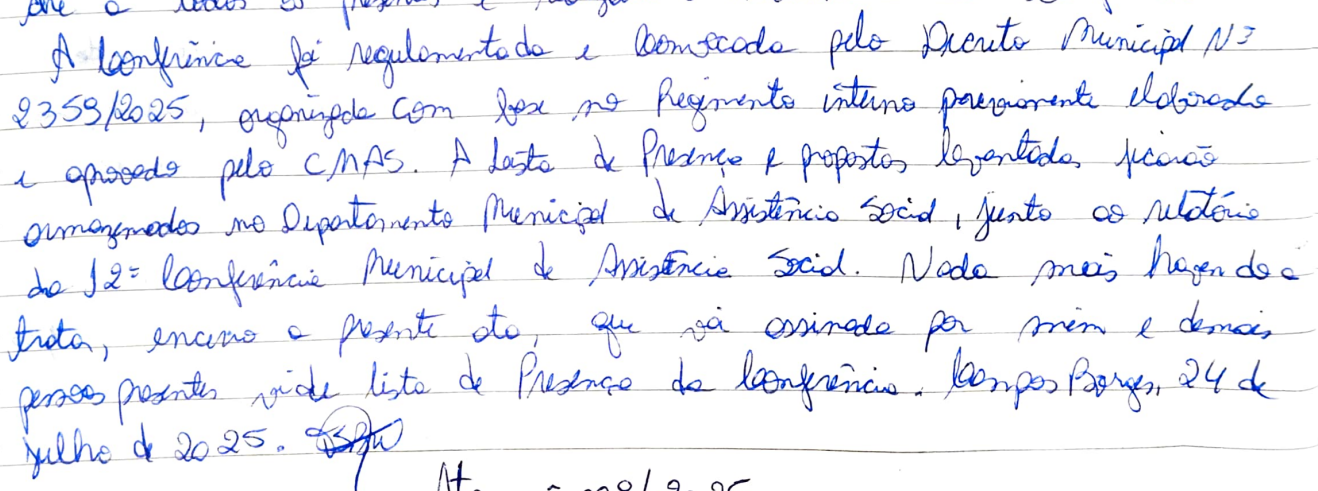 A Conferência foi regulamentada e convocada pelo Decreto Municipal Nº
2359/2025, organizada com base no Regimento interno previamente elaborado
e aprovado pelo CMAS. A Lista de Presença e propostas levantadas, ficarão
armazenados no Departamento Municipal de Assistência Social, junto ao relatório
da 12ª Conferência Municipal de Assistência Social. Nada mais havendo a
tratar, encerro a presente ata, que vai assinada por mim e demais
pessoas presentes vide lista de Presença da Conferência. Campos Borges, 24 de
julho de 2025.